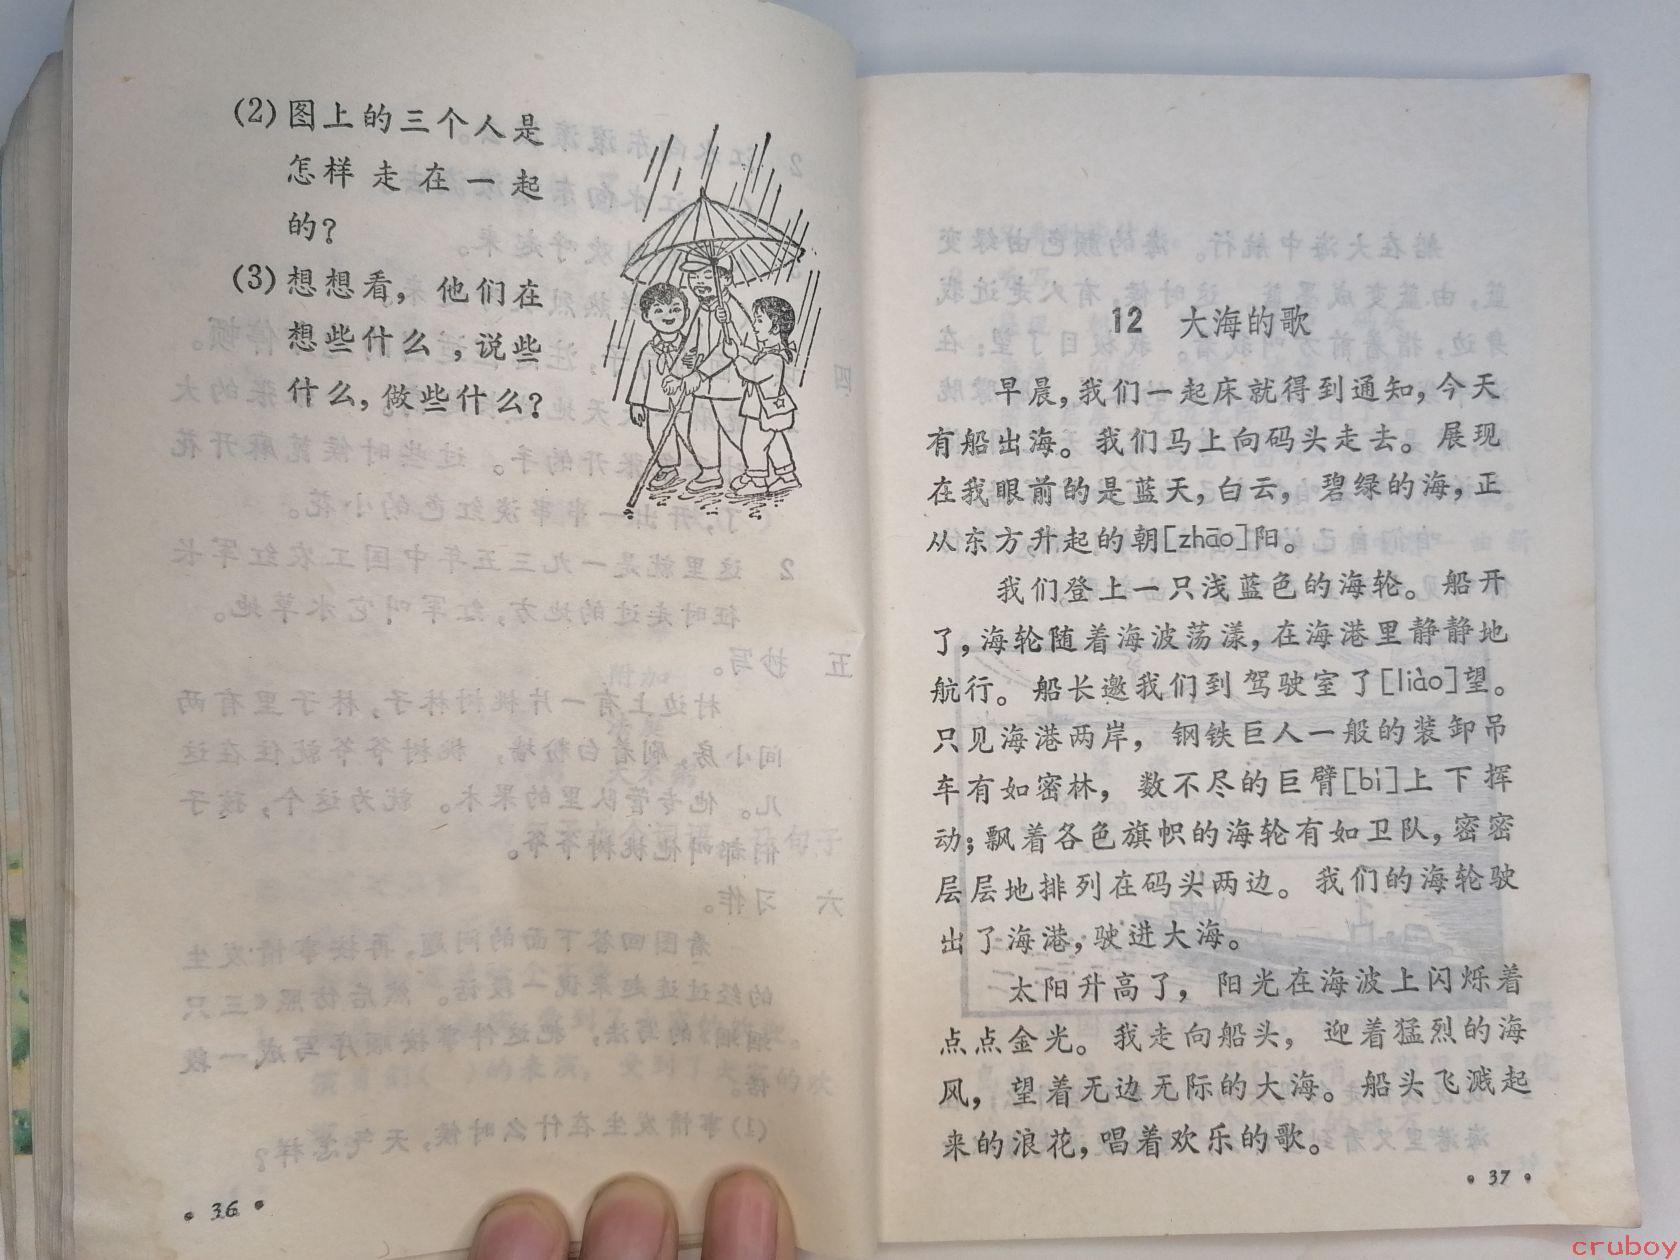 (2) 图上的三个人是
怎样走在一起
的？
(3) 想想看，他们在
想些什么，说些
什么，做些什么？
· 36 ·
12 大海的歌
早晨，我们一起床就得到通知，今天
有船出海。我们马上向码头走去。展现
在我眼前的是蓝天，白云，碧绿的海，正
从东方升起的朝[zhāo]阳。
我们登上一只浅蓝色的海轮。船开
了，海轮随着海波荡漾，在海港里静静地
航行。船长邀我们到驾驶室了[liào]望。
只见海港两岸，钢铁巨人一般的装卸吊
车有如密林，数不尽的巨臂[bì]上下挥
动；飘着各色旗帜的海轮有如卫队，密密
层层地排列在码头两边。我们的海轮驶
出了海港，驶进大海。
太阳升高了，阳光在海波上闪烁着
点点金光。我走向船头，迎着猛烈的海
风，望着无边无际的大海。船头飞溅起
来的浪花，唱着欢乐的歌。
· 37 ·
cruboy